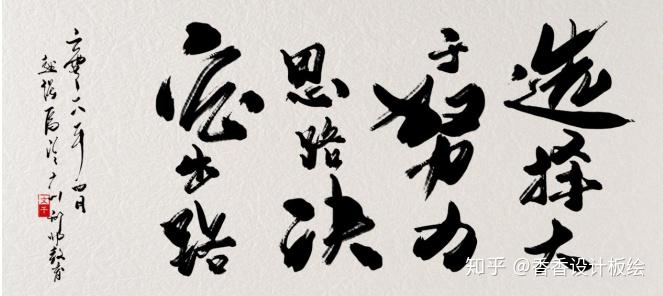 选择大
于努力
思路决
定出路
知乎 @香香设计板绘